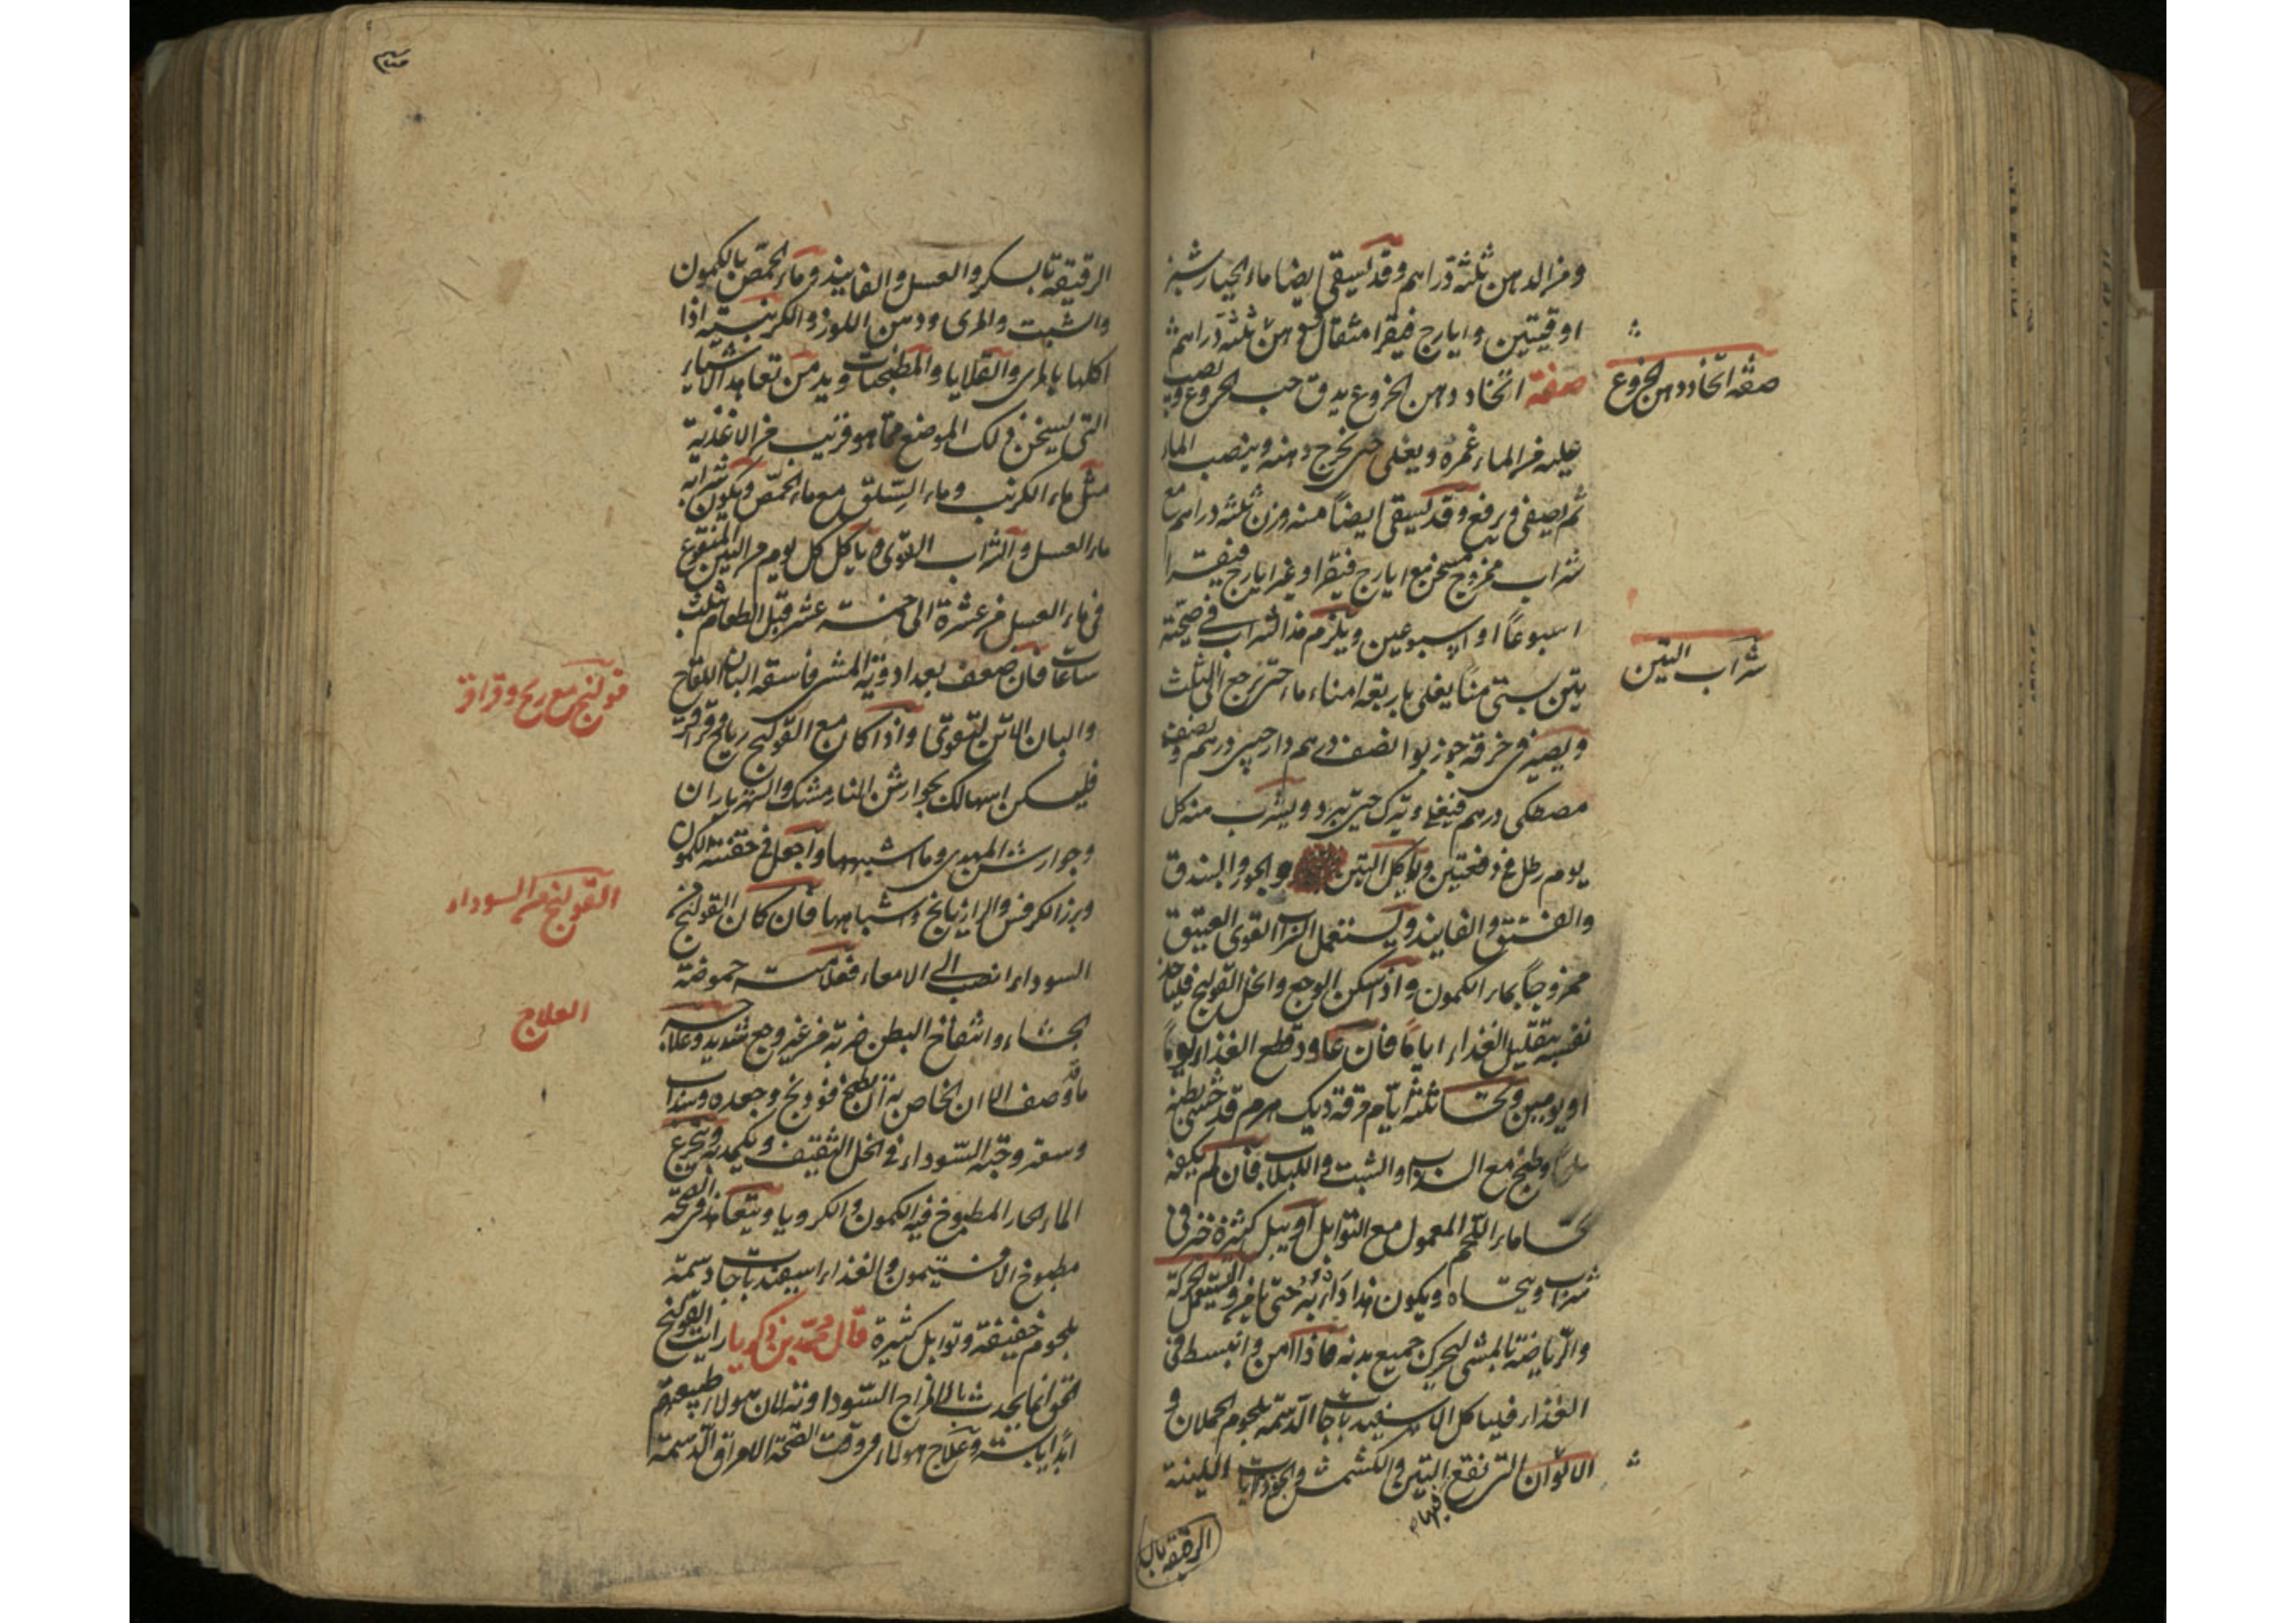 ومن الدهن ثلثة دراهم وقد يسقى ايضا ماء الخيار شنبر
اوقيتين وايارج فيقرا مثقال مع دهن ثلثة دراهم
صفة اتخاد دهن الخروع يدق حب الخروع ويصب
صفة اتخاد دهن الخروع
عليه من الماء غمره ويغلى حتى يخرج دهنه وينصب الماء
ثم يصفى ويرفع وقد يسقى ايضاً منه وزن ثلثة دراهم مع
شراب ممزوج مسخن مع ايارج فيقرا او غير ايارج فيقرا
اسبوعاً او اسبوعين ويلزم هذا الشراب في صحته
شراب التين
تين بستى منا يغلى باربعة امناء ماء حتى يرجع الى الثلث
ويصير في خرقة جوزبوا نصف درهم دارچيني درهم ونصف
مصطكى درهم فيغلى ويترك حتى يبرد ويشرب منه كل
يوم رطل في دفعتين وياكل التين والجوز والبندق
والفستق والفانيد ويستعمل الشراب القوى العتيق
ممزوجاً بماء الكمون واذا سكن الوجع وانحل القولنج فلياخذ
نفسه بتقليل الغذاء اياما فان عاود قطع الغذاء يوماً
او يومين وتحسا ثلثة ايام مرقة ديك هرم قد حشى بطنه
ملحاً وطبخ مع السذاب والشبت واللبلاب فان لم يكفه
تحسا ماء اللحم المعمول مع التوابل او يبل كثيرة خبز في
شراب ويتحساه ويكون هذا دابه حتى يامن ويستعمل الحركة
والرياضة بالمشى ليحرك جميع بدنه فاذا امن وانبسط في
الغذاء فلياكل الاسفيدباجات الدسمة بلحوم الحملان و
الالوان التي نقع فيها التين والكشمش والجوذابات اللينة
الرقيقة بالسكر
الرقيقة بالسكر والعسل والفانيد وماء الحمص بالكمون
والشبت والمرى ودهن اللوز والكرنبية اذا
اكلها بالمرى والقلايا والمطجنات ويدمن تعاهد الاشياء
التي يسخن ذلك الموضع مما هو قريب من الاغذية
مثل ماء الكرنب وماء السلق مع ماء الحمص ويكون شرابه
ماء العسل والشراب القوى وياكل كل يوم من التين المنقوع
في ماء العسل من عشرة الى خمسة عشر قبل الطعام بثلث
ساعات فان ضعف بعد ادوية المشى فاسقه البان اللقاح
والبان الاتن لتقوى واذا كان مع القولنج رياح وقراقر
قولنج مع ريح وقراقر
فليكن اسهالك بجوارشن النارمشك والشهرياران
وجوارشن المهدى وما اشبهها واجعل في حقنته الكمون
وبزر الكرفس والرازيانج واشباهها فان كان القولنج من
القولنج من السوداء
السوداء انصب الى الامعاء فعلامته حموضة
الجشاء وانتفاخ البطن ضربة من غير وجع شديد وعلاجه
العلاج
ما وصف الا ان الخاص به ان يطبخ فودنج وجعده وسذاب
وسعتر وحبة السوداء في الخل الثقيف ويكمد به ويتجرع
الماء الحار المطبوخ فيه الكمون والكرويا ويتعاهد في الصحة
مطبوخ الافتيمون والغذاء اسفيدباجات دسمة
بلحوم خفيفة وتوابل كثيرة قال محمد بن زكريا رايت القولنج
انما يحدث بالمزاج السوداوى لان هولاء طبيعتهم
ابدا يابسة وعلاج هولاء في وقت الصحة الامراق الدسمة